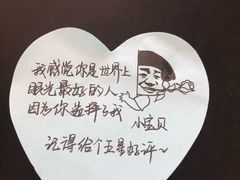 我感觉你是世界上
眼光最好的人
因为你选择了我
小宝贝
记得给个五星好评~